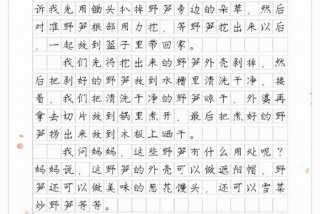 诉我先用锄头扒掉野笋旁边的杂草，然后
对准野笋根部用力挖，等野笋挖出来以后
，一起放到篮子里带回家。
我们先将挖出来的野笋外壳剥掉，然
后把剥好的野笋放到水槽里清洗干净，接
着，我们把清洗干净的野笋晾干，外婆再
拿去切片放到锅里煮开，最后把煮好的野
笋捞出来放到木板上晒干。
我问妈妈，这些野笋有什么用处呢？
妈妈说，这野笋的外壳可以做遮阳帽，野
笋还可以做美味的葱花馒头，还可以雪菜
炒野笋等等。